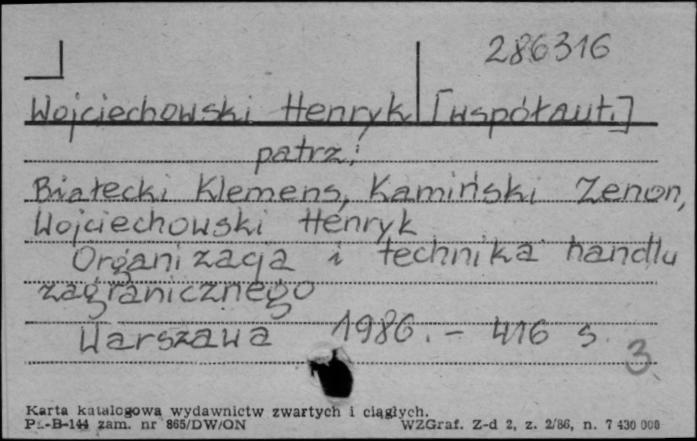 286316
Wojciechowski Henryk [współaut.]
patrz:
Białecki Klemens, Kamiński Zenon,
Wojciechowski Henryk
Organizacja i technika handlu
zagranicznego
Warszawa 1986. - 416 s.
3
Karta katalogowa wydawnictw zwartych i ciągłych.
Pu-B-144 zam. nr 865/DW/ON WZGraf. Z-d 2, z. 2/86, n. 7 430 000